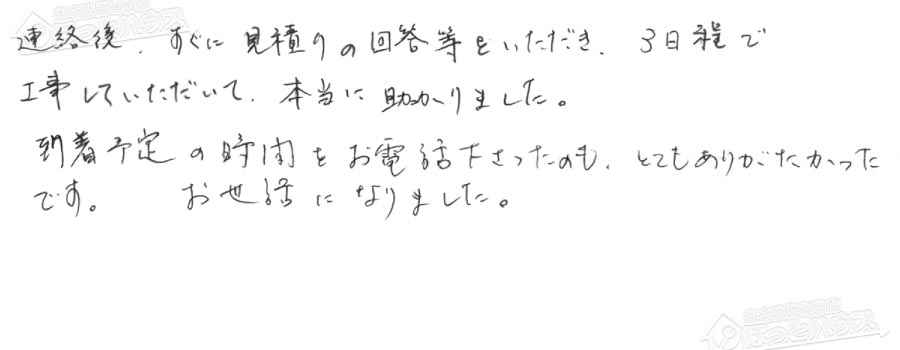 連絡後、すぐに見積りの回答等をいただき、3日程で
工事していただいて、本当に助かりました。
到着予定の時間をお電話下さったのも、とてもありがたかった
です。 お世話になりました。
住宅設備専門館
ほっとハウス